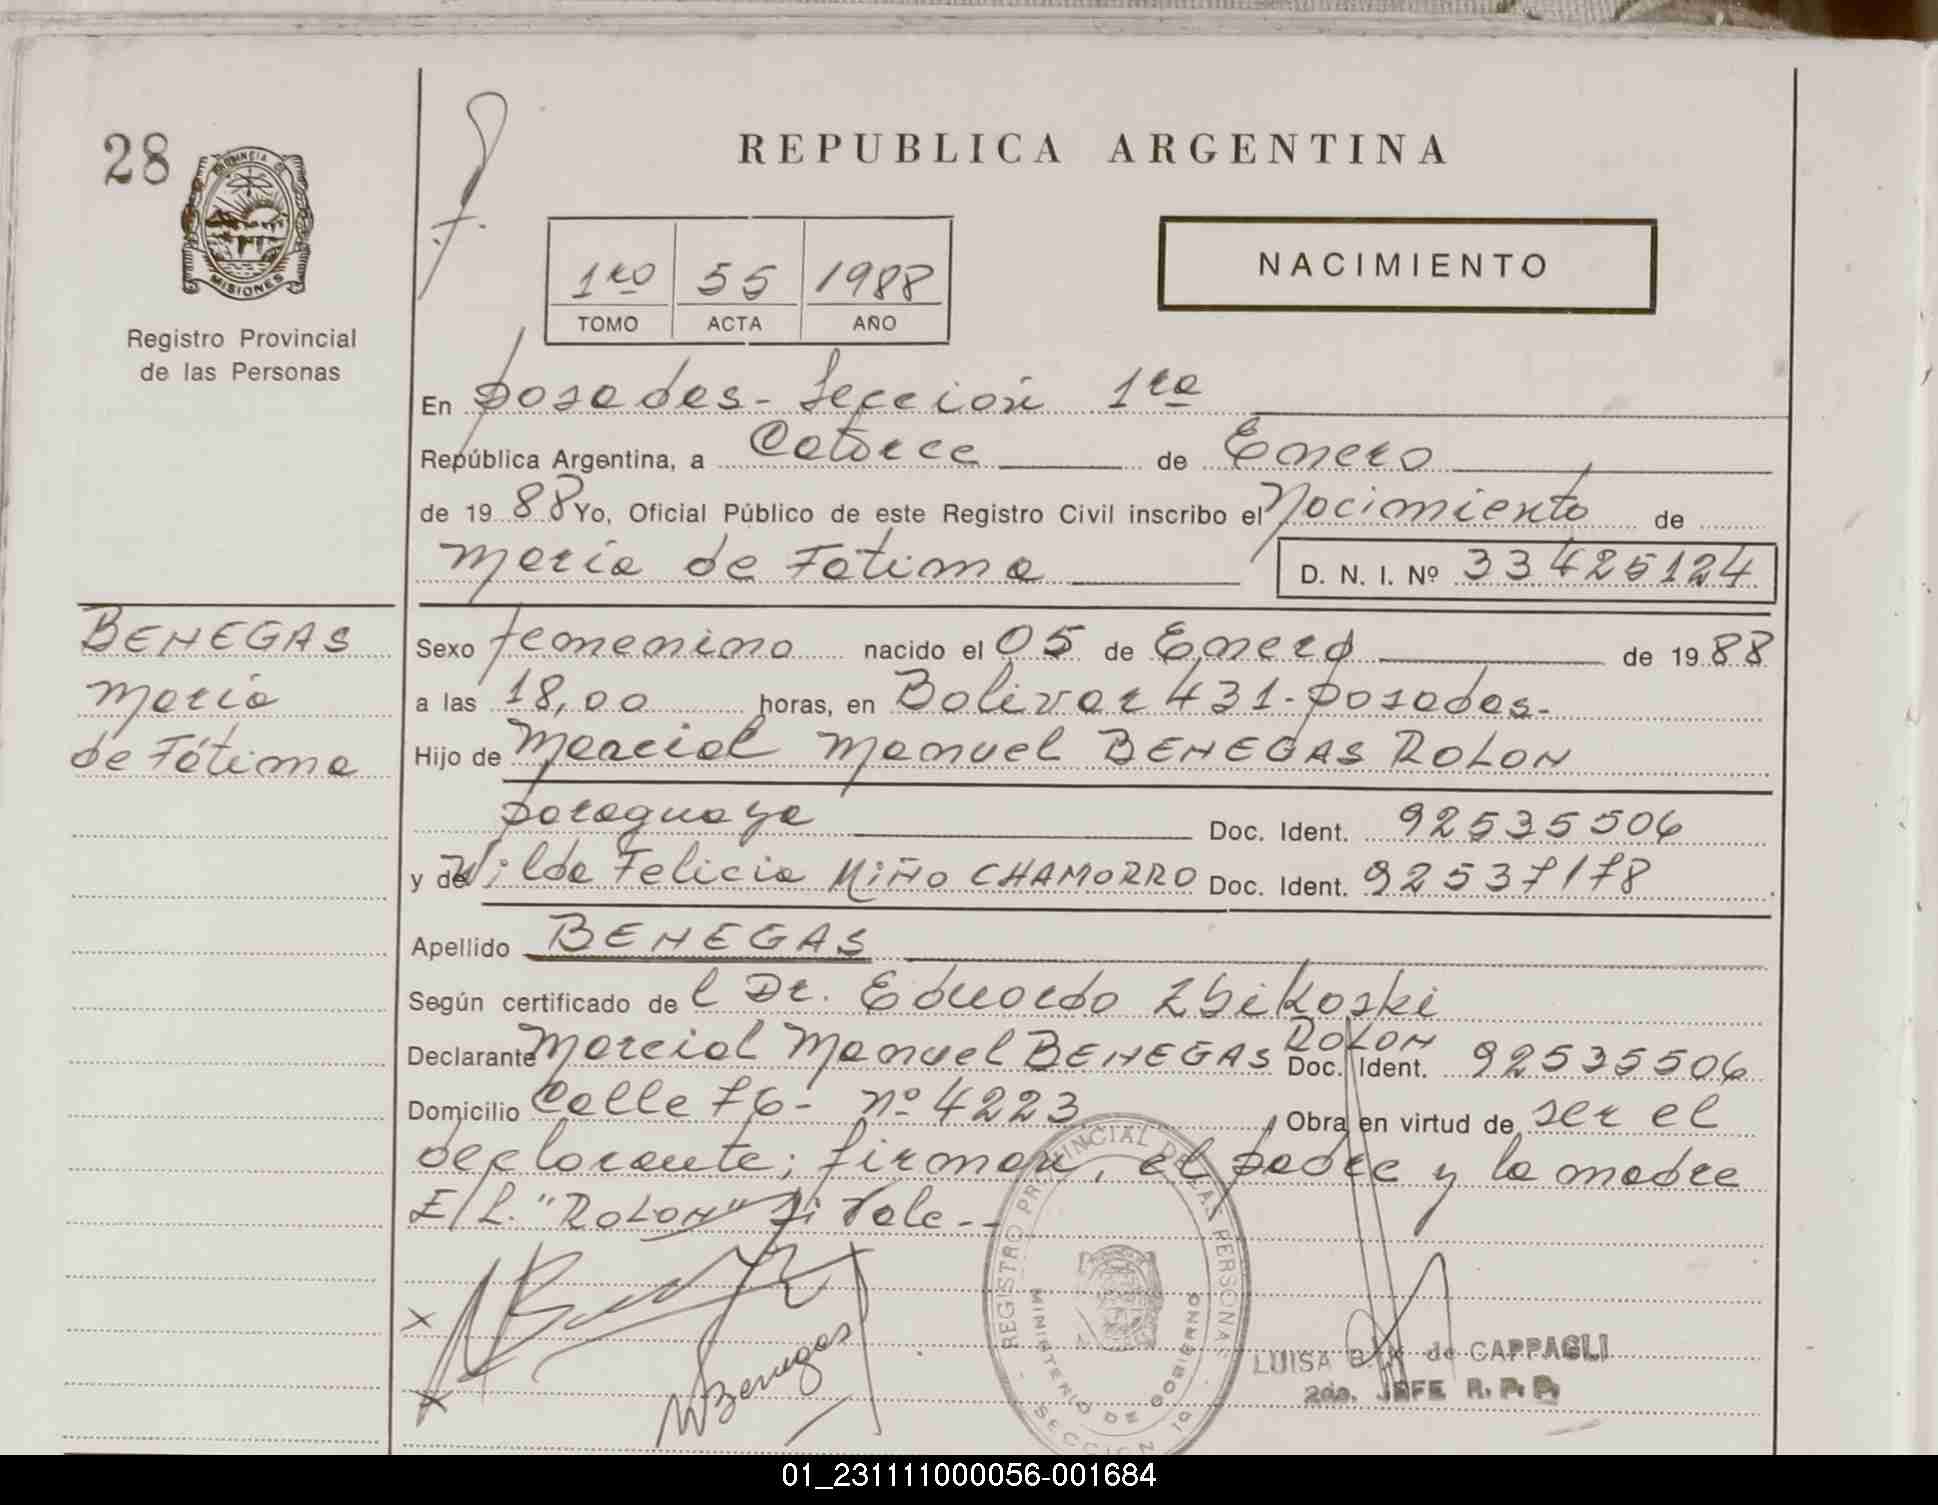 28
PROVINCIA DE
MISIONES
Registro Provincial
de las Personas
REPUBLICA ARGENTINA
1ro 55 1988
TOMO ACTA AÑO
NACIMIENTO
En Posadas - Sección 1ra
República Argentina, a Catorce de Enero
de 19 88 Yo, Oficial Público de este Registro Civil inscribo el Nacimiento de
María de Fátima D. N. I. Nº 33425124
BENEGAS
María
de Fátima
Sexo femenino nacido el 05 de Enero de 19 88
a las 18,00 horas, en Bolivar 431 - Posadas.
Hijo de Marcial Manuel BENEGAS ROLON
paraguaya Doc. Ident. 92535506
y de Wilda Felicia MIÑO CHAMORRO Doc. Ident. 92537178
Apellido BENEGAS
Según certificado de l Dr. Eduardo Zbikoski
Declarante Marcial Manuel BENEGAS ROLON Doc. Ident. 92535506
Domicilio Calle 76 - nº 4223 Obra en virtud de ser el
declarante; firman, el padre y la madre
E/L. "ROLON" Si Vale --
W Benegas
REGISTRO PROVINCIAL DE LAS PERSONAS
MINISTERIO DE GOBIERNO
SECCION 1a
LUISA de CAPPAGLI
2do. JEFE R. P. P.
01_231111000056-001684